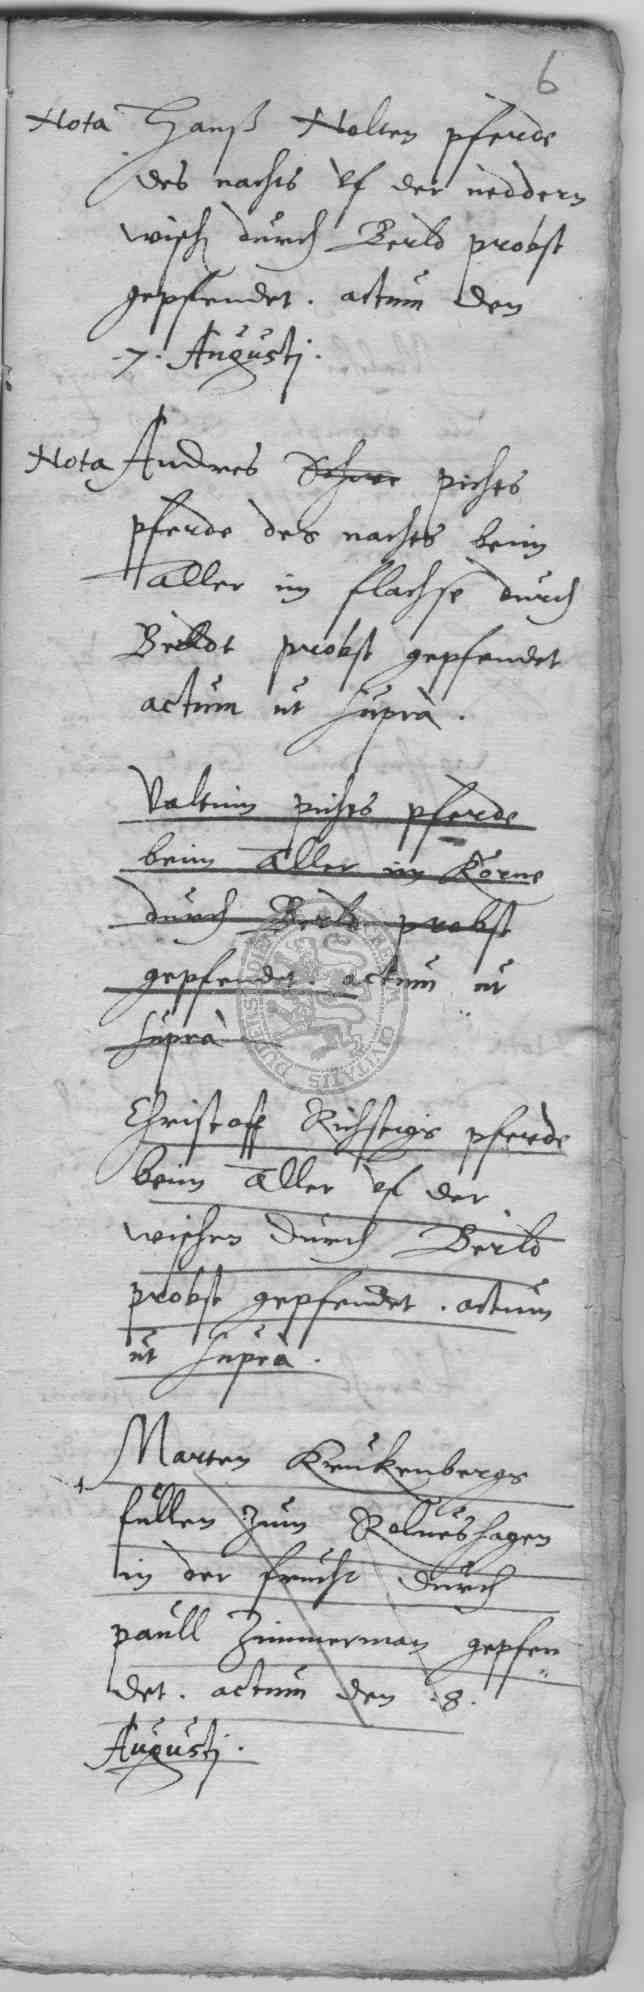 6
Nota Hanß Nolten pferde
des nachts vf der neddern
wisch durch Berld probst
gepfendet. actum den
.7. Augustj.
Nota Andres Schwe pichts
pferde des nachts beim
Aller im flachse durch
Beldt probst gepfendet
actum ut supra.
Valtiin pichts pferde
beim Aller im Korne
durch Berld probst
gepfendet. actum ut
supra
Christoff Richtergs pferde
beim Aller vf der
wischen durch Berld
probst gepfendet. actum
ut supra.
Marten Kreukenbergs
füllen zum Rolueshagen
in der frucht durch
paull Zimmerman gepfen
det. actum den .8.
Augustj.